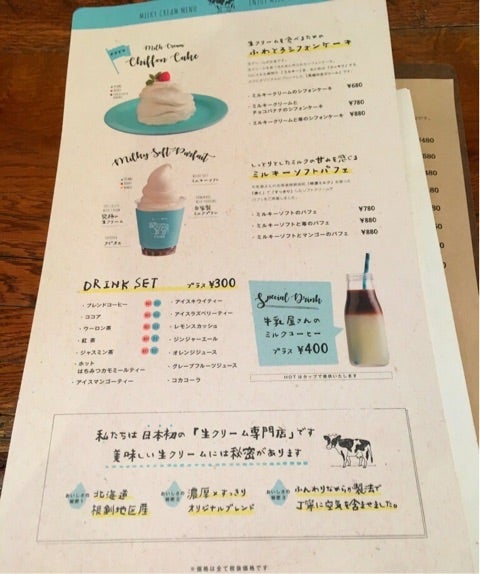 MILKY CREAM MENU
Milk Cream
Chiffon Cake
生クリームを食べるための
ふわとろシフォンケーキ
・ミルキークリームのシフォンケーキ ¥680
・ミルキークリームと
チョコバナナのシフォンケーキ ¥780
・ミルキークリームと苺のシフォンケーキ ¥880
Milky Soft Parfait
しっとりとしたミルクの甘みを感じる
ミルキーソフトパフェ
・ミルキーソフトのパフェ ¥780
・ミルキーソフトと苺のパフェ ¥880
・ミルキーソフトとマンゴーのパフェ ¥880
DRINK SET プラス ¥300
・ブレンドコーヒー
・ココア
・ウーロン茶
・紅茶
・ジャスミン茶
・ホット
はちみつカモミールティー
・アイスマンゴーティー
・アイスキウイティー
・アイスラズベリーティー
・レモンスカッシュ
・ジンジャーエール
・オレンジジュース
・グレープフルーツジュース
・コカコーラ
Special Drink
牛乳屋さんの
ミルクコーヒー
プラス ¥400
HOTはカップで提供いたします
私たちは日本初の『生クリーム専門店』です
美味しい生クリームには秘密があります
おいしさの
秘密1
北海道
根釧地区産
おいしさの
秘密2
濃厚×すっきり
オリジナルブレンド
おいしさの
秘密3
ふんわりなめらか製法で
丁寧に空気を含ませました。
※価格は全て税抜価格です